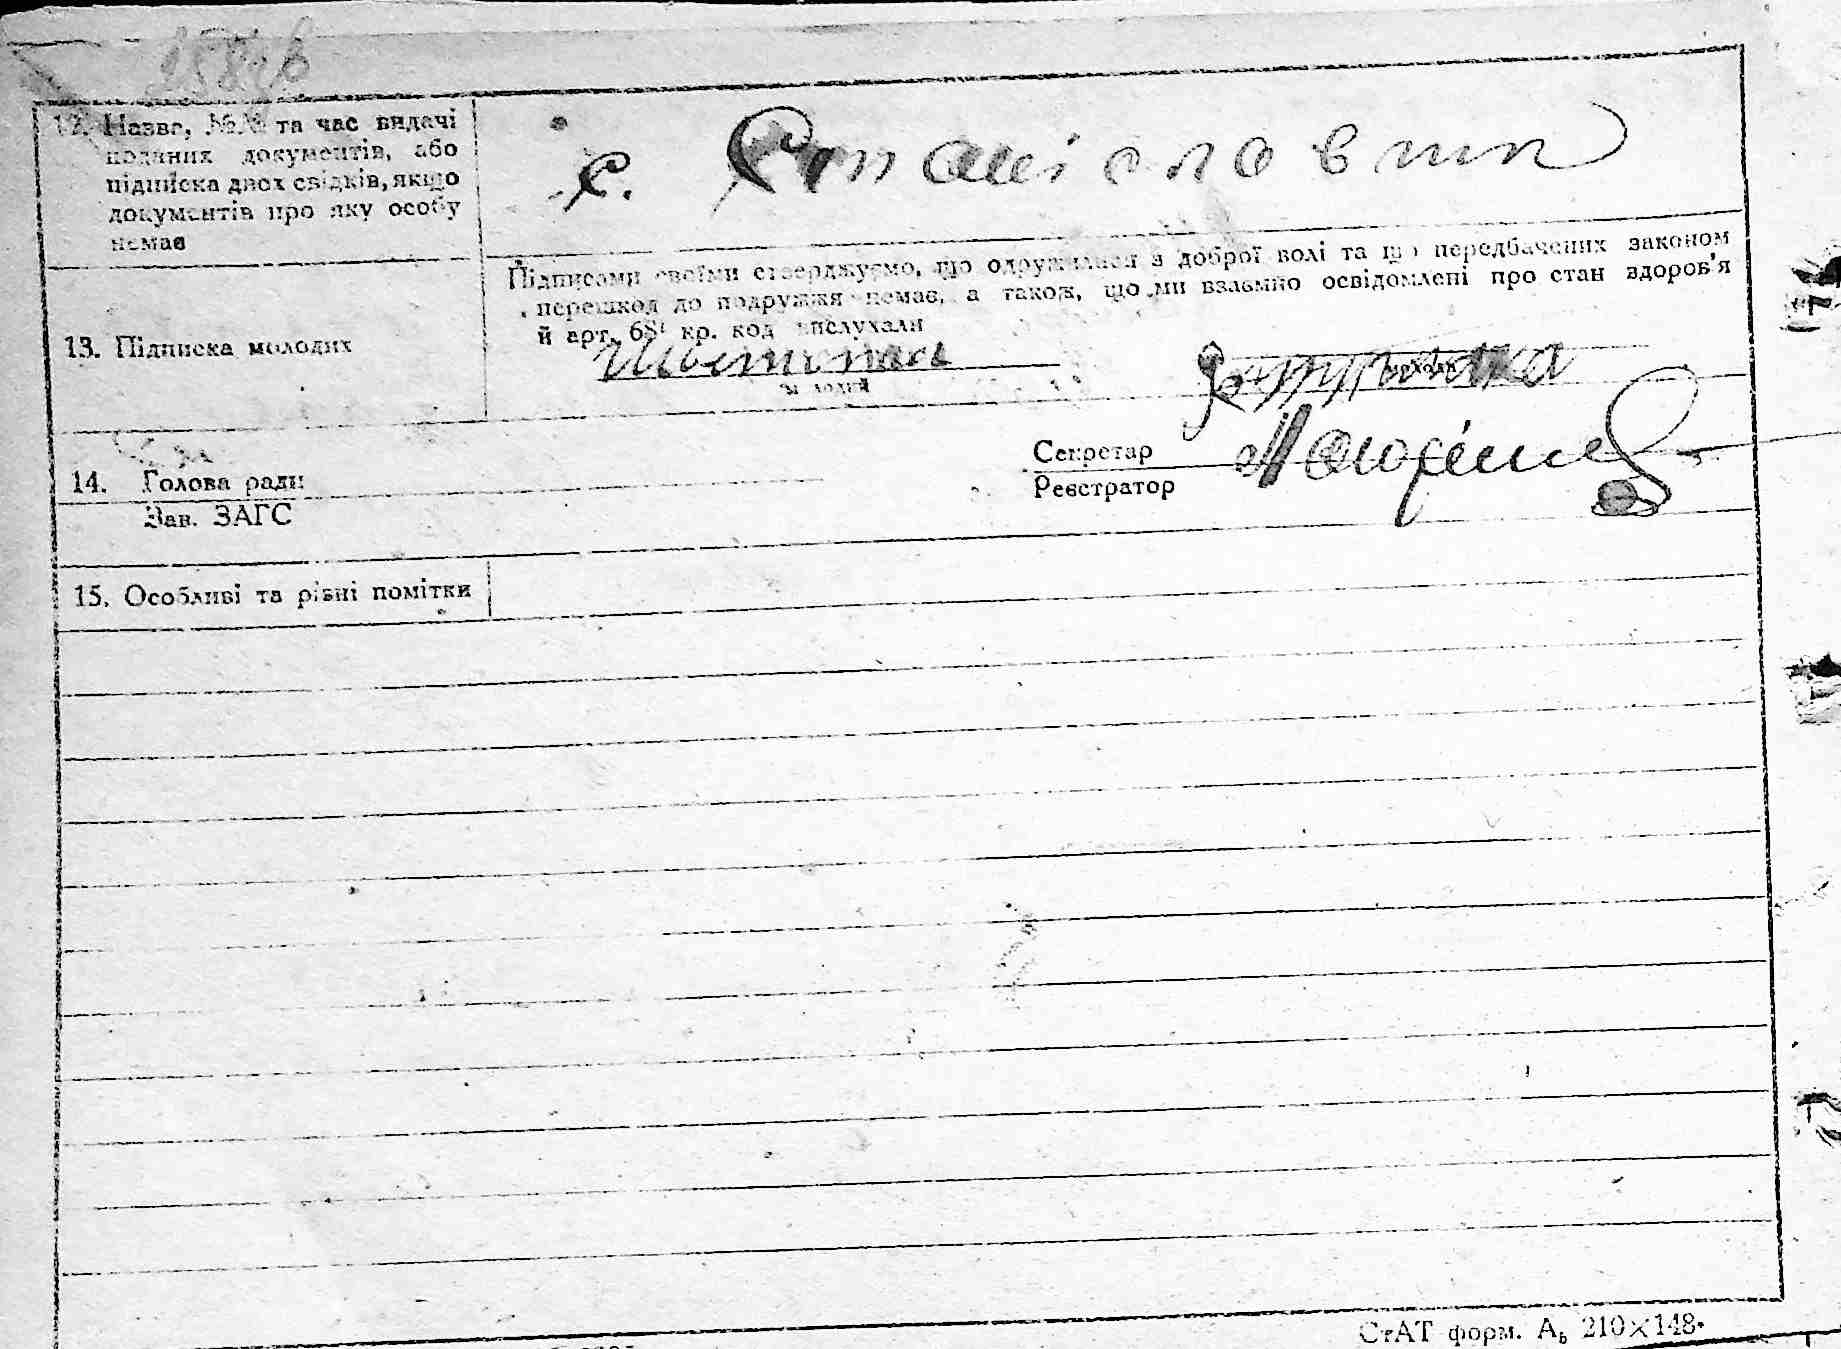 258зв
12. Назва, №№ та час видачі
поданих документів, або
підписка двох свідків, якщо
документів про яку особу
немає
с.
Підписами своїми стверджуємо, що одружилися з доброї волі та що передбачених законом
перешкод до подружжя немає, а також, що ми взаємно освідомлені про стан здоров'я
й арт. 68¹ кр. код вислухали
13. Підписка молодих
молодий
молода
14. Голова ради
Зав. ЗАГС
Секретар
Реєстратор
15. Особливі та різні помітки
СтАТ форм. А₅ 210×148.